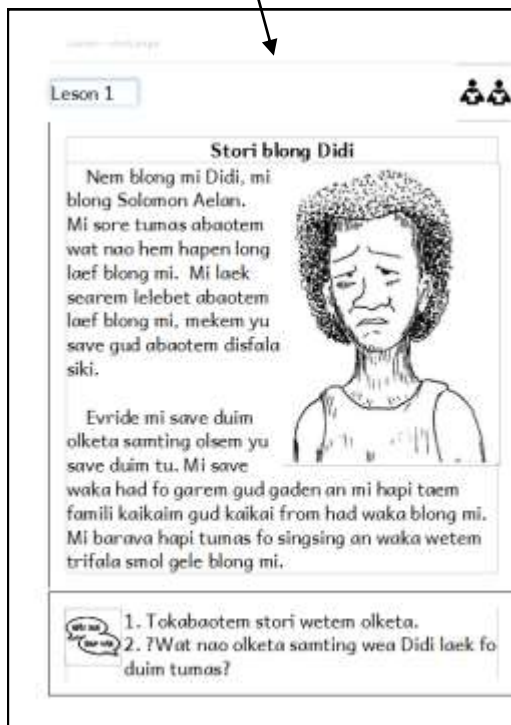 Leson 1
Stori blong Didi
Nem blong mi Didi, mi
blong Solomon Aelan.
Mi sore tumas abaotem
wat nao hem hapen long
laef blong mi. Mi laek
searem lelebet abaotem
laef blong mi, mekem yu
save gud abaotem disfala
siki.
Evride mi save duim
olketa samting olsem yu
save duim tu. Mi save
waka had fo garem gud gaden an mi hapi taem
famili kaikaim gud kaikai from had waka blong mi.
Mi barava hapi tumas fo singsing an waka wetem
trifala smol gele blong mi.
1. Tokabaotem stori wetem olketa.
2. ?Wat nao olketa samting wea Didi laek fo
duim tumas?